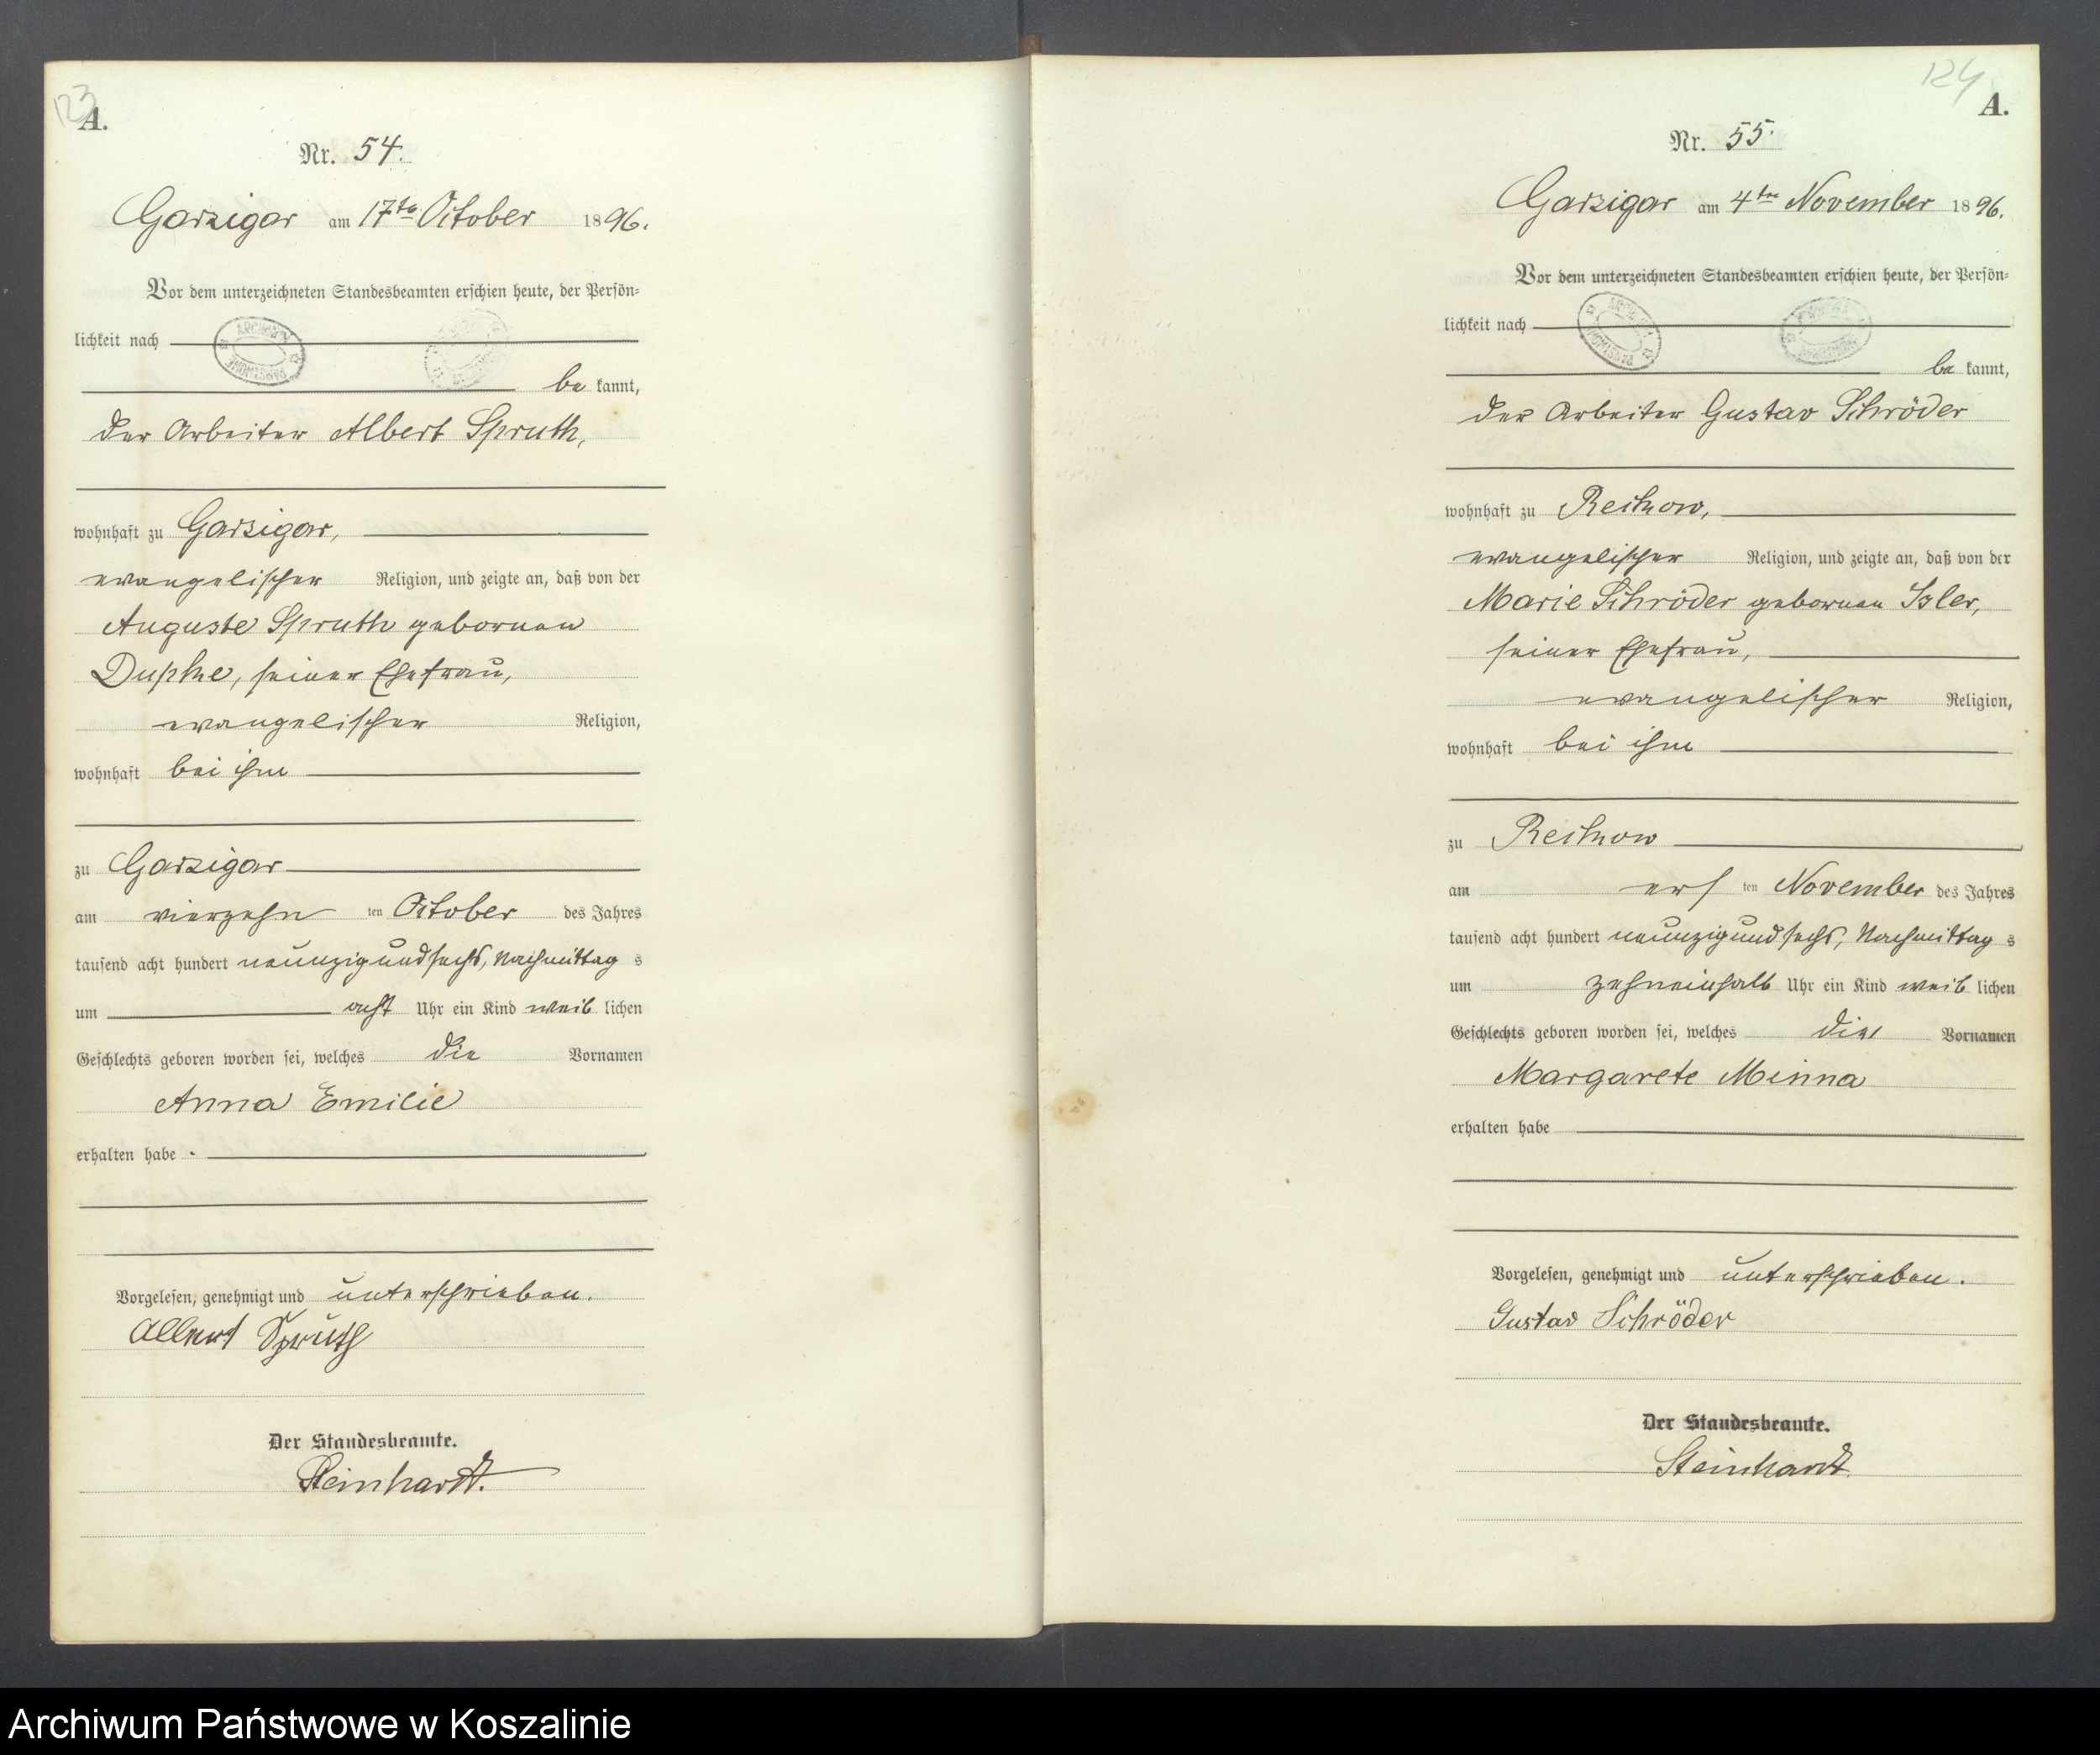 123
A.
Nr. 54.
Garzigar am 17ten October 1896.
Vor dem unterzeichneten Standesbeamten erschien heute, der Persön-
lichkeit nach
be kannt,
der Arbeiter Albert Spruth,
wohnhaft zu Garzigar,
evangelischer Religion, und zeigte an, daß von der
Auguste Spruth gebornen
Dupke, seiner Ehefrau,
evangelischer Religion,
wohnhaft bei ihm
zu Garzigar
am vierzehn ten October des Jahres
tausend acht hundert neunzig und sechs, Nachmittag s
um acht Uhr ein Kind weib lichen
Geschlechts geboren worden sei, welches die Vornamen
Anna Emilie
erhalten habe.
Vorgelesen, genehmigt und unterschrieben.
Albert Spruth
Der Standesbeamte.
Steinhardt.
124
A.
Nr. 55.
Garzigar am 4ten November 1896.
Vor dem unterzeichneten Standesbeamten erschien heute, der Persön-
lichkeit nach
be kannt,
der Arbeiter Gustav Schröder
wohnhaft zu Reckow,
evangelischer Religion, und zeigte an, daß von der
Marie Schröder gebornen Isler,
seiner Ehefrau,
evangelischer Religion,
wohnhaft bei ihm
zu Reckow
am ers ten November des Jahres
tausend acht hundert neunzig und sechs, Nachmittag s
um zehneinhalb Uhr ein Kind weib lichen
Geschlechts geboren worden sei, welches die Vornamen
Margarete Minna
erhalten habe
Vorgelesen, genehmigt und unterschrieben.
Gustav Schröder
Der Standesbeamte.
Steinhardt
Archiwum Państwowe w Koszalinie